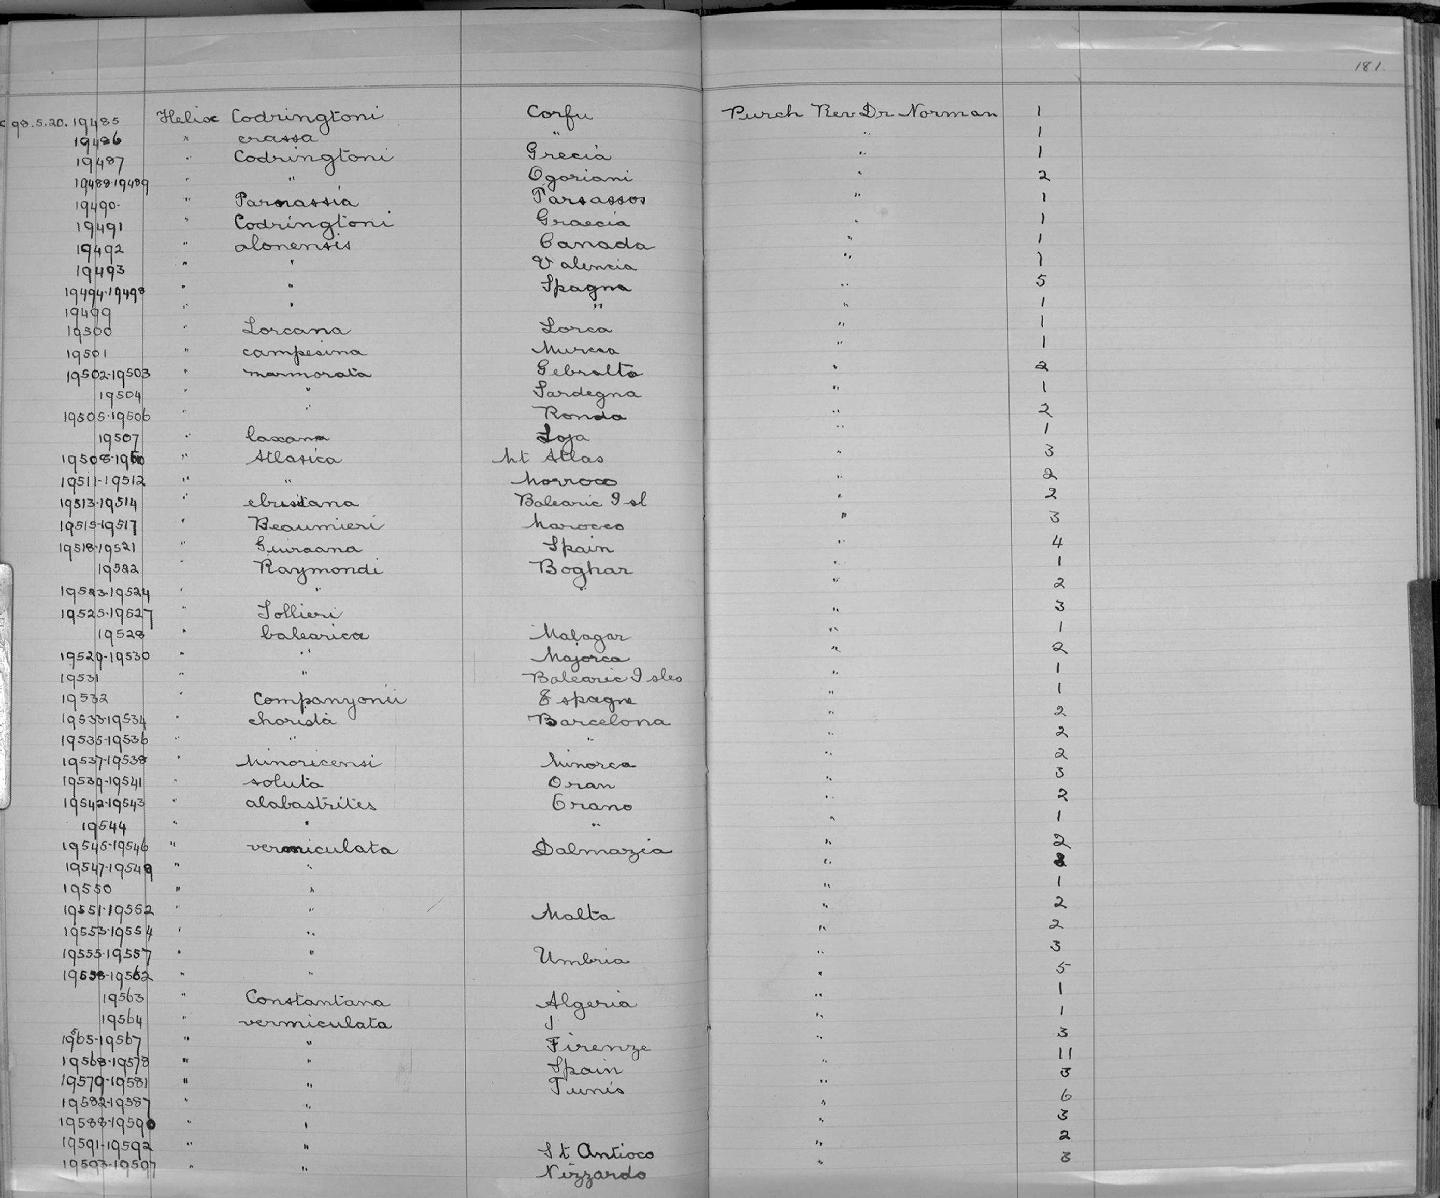 181.
98.5.20.19485 Helix Codringtoni Corfu Purch Rev Dr Norman 1
19486 " crassa " " 1
19487 " Codringtoni Grecia " 1
19488-19489 " " Ogoriani " 2
19490- " Parnassia Parsassos " 1
19491 " Codringtoni Graecia " 1
19492 " alonensis Canada " 1
19493 " " Valencia " 1
19494-19498 " " Spagna " 5
19499 " " " " 1
19500 " Lorcana Lorca " 1
19501 " campesina Murcia " 1
19502-19503 " marmorata Gebralta " 2
19504 " " Sardegna " 1
19505-19506 " " Ronda " 2
19507 " loxana Loja " 1
19508-19510 " Atlasica Mt Atlas " 3
19511-19512 " " Morroco " 2
19513-19514 " ebusitana Balearic Isl " 2
19515-19517 " Beaumieri Marocco " 3
19518-19521 " Guiraana Spain " 4
19522 " Raymondi Boghar " 1
19523-19524 " " " " 2
19525-19527 Lollieri " 3
19528 " balearica Malagar " 1
19529-19530 " " Majorca " 2
19531 " " Balearic Isles " 1
19532 " Companyonii Espagne " 1
19533-19534 " chorista Barcelona " 2
19535-19536 " " " " 2
19537-19538 " Minoricensi Minorca " 2
19539-19541 " soluta Oran " 3
19542-19543 " alabastrites Orano " 2
19544 " " " " 1
19545-19546 " vermiculata Dalmazia " 2
19547-19548 " " " 2
19550 " " " 1
19551-19552 " " Malta " 2
19553-19554 " " " 2
19555-19557 " " Umbria " 3
19558-19562 " " " 5
19563 " Constantana Algeria " 1
19564 " vermiculata " 1
19565-19567 " " Firenze " 3
19568-19578 " " Spain " 11
19579-19581 " " Tunis " 3
19582-19587 " " " 6
19588-19590 " " " 3
19591-19592 " " St Antioco " 2
19593-19597 " " Nizzardo " 3